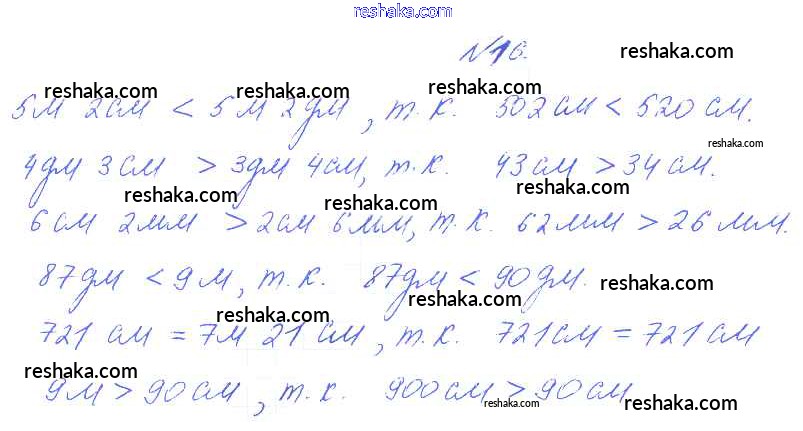 reshaka.com
№16. reshaka.com
reshaka.com reshaka.com reshaka.com
5м 2см < 5м 2дм, т.к. 502см < 520см.
reshaka.com
4дм 3см > 3дм 4см, т.к. 43см > 34см.
reshaka.com reshaka.com reshaka.com
6см 2мм > 2см 6мм, т.к. 62мм > 26мм.
87дм < 9м, т.к. 87дм < 90дм.
reshaka.com reshaka.com reshaka.com
721 см = 7м 21см, т.к. 721см = 721см
reshaka.com
9м > 90см, т.к. 900см > 90см
reshaka.com reshaka.com